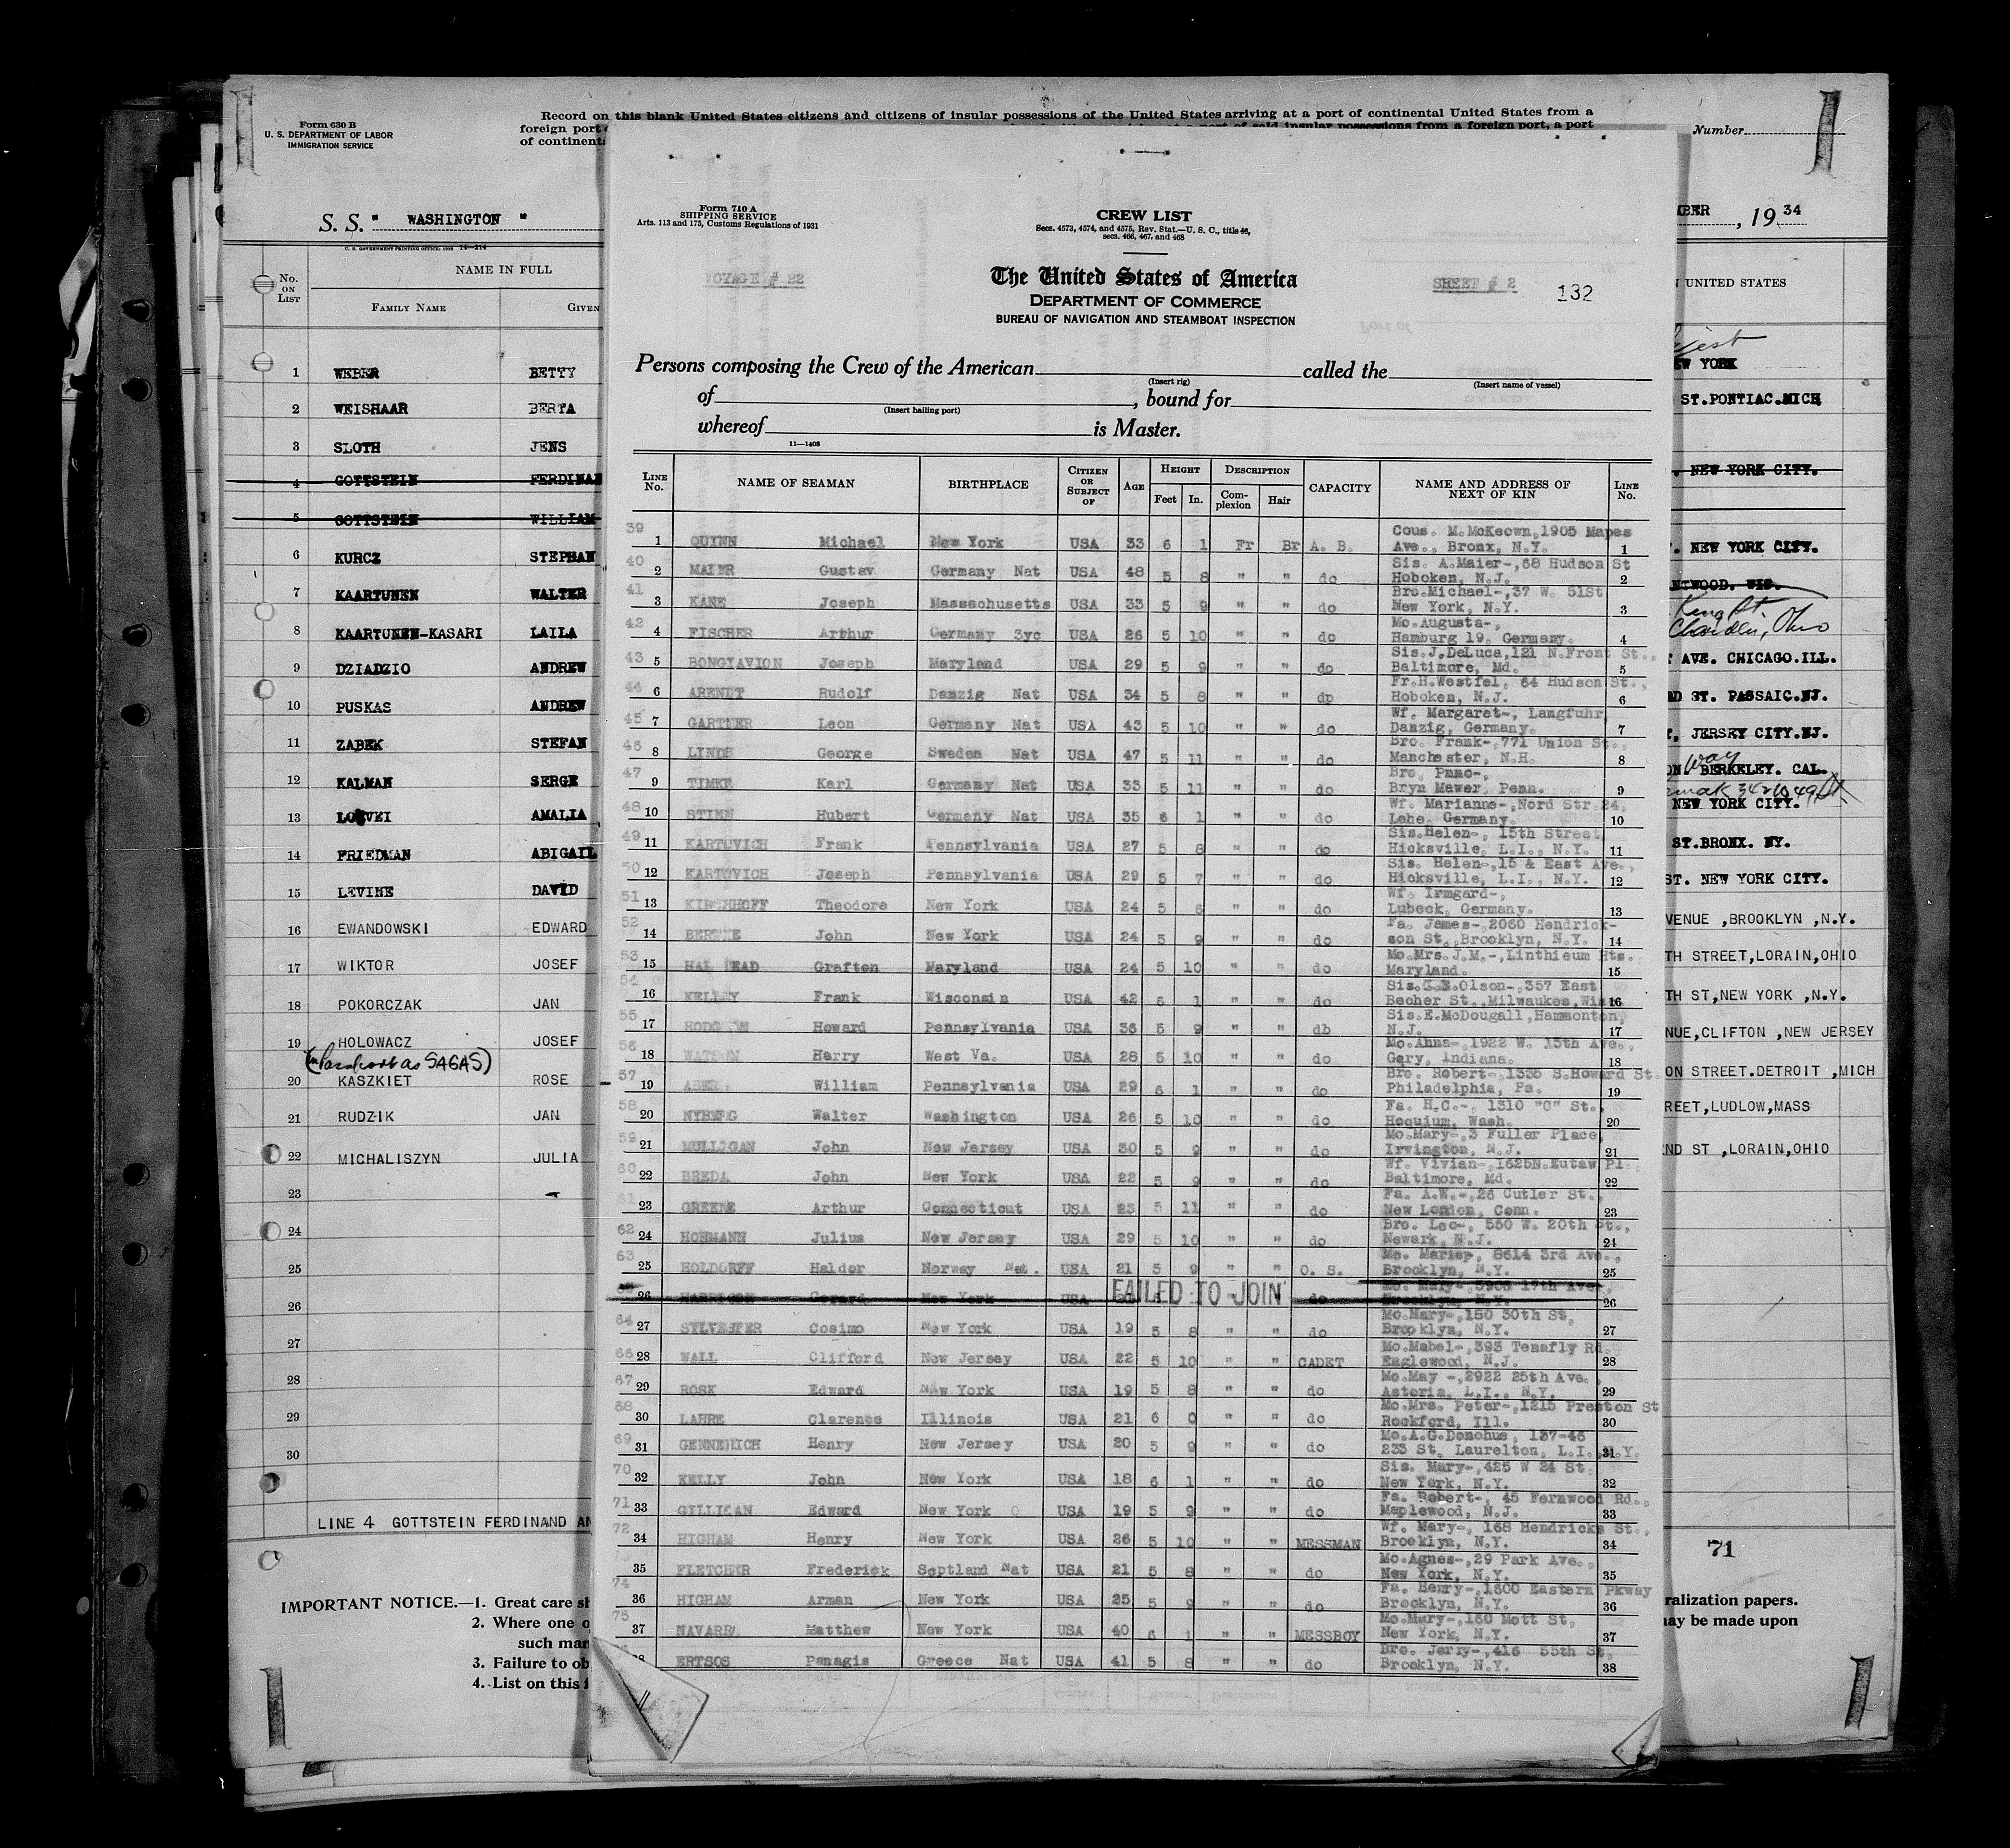 Form 630 B
U. S. DEPARTMENT OF LABOR
IMMIGRATION SERVICE
Record on this blank United States citizens and citizens of insular possessions of the United States arriving at a port of continental United States from a
foreign port
of said insular possessions from a foreign port, a port
of continent
Number
S. S. " WASHINGTON "
MBER , 19 34
U. S. GOVERNMENT PRINTING OFFICE
14—214
No. ON LIST
NAME IN FULL
FAMILY NAME GIVEN
UNITED STATES
1 WEBER BETTY EW YORK
2 WEISHAAR BERTA ST.PONTIAC.MICH
3 SLOTH JENS
4 GOTTSTEIN FERDINAN . NEW YORK CITY.
5 GOTTSTEIN WILLIAM
6 KURCZ STEPHAN . NEW YORK CITY.
7 KAARTUNEN WALTER NTWOOD. WIS.
8 KAARTUNEN-KASARI LAILA King St Chardon, Ohio
9 DZIADZIO ANDREW AVE. CHICAGO.ILL.
10 PUSKAS ANDREW D ST. PASSAIC.NJ.
11 ZABEK STEFAN . JERSEY CITY.NJ.
12 KALMAN SERGE ON way BERKELEY. CAL.
13 AMALIA NEW YORK CITY.
14 FRIEDMAN ABIGAIL ST.BRONX. NY.
15 LEVINE DAVID ST. NEW YORK CITY.
16 EWANDOWSKI EDWARD VENUE ,BROOKLYN ,N.Y.
17 WIKTOR JOSEF TH STREET,LORAIN,OHIO
18 POKORCZAK JAN TH ST,NEW YORK ,N.Y.
19 HOLOWACZ JOSEF NUE,CLIFTON ,NEW JERSEY
(in Passport as SAGAS)
20 KASZKIET ROSE ON STREET.DETROIT ,MICH
21 RUDZIK JAN REET,LUDLOW,MASS
22 MICHALISZYN JULIA ND ST ,LORAIN,OHIO
23
24
25
26
27
28
29
30
LINE 4 GOTTSTEIN FERDINAND AN
71
IMPORTANT NOTICE.—1. Great care sh
ralization papers.
2. Where one o
ay be made upon
such man
3. Failure to ob
4. List on this f
Form 710 A
SHIPPING SERVICE
Arts. 113 and 175, Customs Regulations of 1931
CREW LIST
Secs. 4573, 4574, and 4575, Rev. Stat.—U. S. C., title 46,
secs. 466, 467, and 468
VOYAGE # 22
The United States of America
SHEET # 2 132
DEPARTMENT OF COMMERCE
BUREAU OF NAVIGATION AND STEAMBOAT INSPECTION
Persons composing the Crew of the American called the
(Insert rig) (Insert name of vessel)
of , bound for
(Insert hailing port)
whereof is Master.
11—1408
LINE No. NAME OF SEAMAN BIRTHPLACE CITIZEN OR SUBJECT OF AGE HEIGHT Feet In. DESCRIPTION Complexion Hair CAPACITY NAME AND ADDRESS OF NEXT OF KIN LINE No.
39 1 QUINN Michael New York USA 33 6 1 Fr Br A. B. Cous. M.McKeown,1905 Mapes Ave., Bronx, N.Y. 1
40 2 MAIER Gustav Germany Nat USA 48 5 8 " " do Sis. A.Maier-,68 Hudson St Hoboken, N.J. 2
41 3 KANE Joseph Massachusetts USA 33 5 9 " " do Bro.Michael-,37 W. 51St New York, N.Y. 3
42 4 FISCHER Arthur Germany 3yc USA 26 5 10 " " do Mo.Augusta-, Hamburg 19, Germany. 4
43 5 BONGIAVION Joseph Maryland USA 29 5 9 " " do Sis.J.DeLuca,121 N.Front St., Baltimore, Md. 5
44 6 ARENDT Rudolf Danzig Nat USA 34 5 8 " " do Fr.H.Westfel, 64 Hudson St., Hoboken, N.J. 6
45 7 GARTNER Leon Germany Nat USA 43 5 10 " " do Wf. Margaret-, Langfuhr, Danzig, Germany. 7
46 8 LINDE George Sweden Nat USA 47 5 11 " " do Bro. Frank-,771 Union St., Manchester, N.H. 8
47 9 TIMKE Karl Germany Nat USA 33 5 11 " " do Bro. Bryn Mawer, Penn. 9
48 10 STINN Hubert Germany Nat USA 35 6 1 " " do Wf. Marianne-,Nord Str.24, Lehe, Germany. 10
49 11 KARTOVICH Frank Pennsylvania USA 27 5 8 " " do Sis.Helen-, 15th Street, Hicksville, L.I., N.Y. 11
50 12 KARTOVICH Joseph Pennsylvania USA 29 5 7 " " do Sis. Helen-,15 & East Ave., Hicksville, L.I., N.Y. 12
51 13 KIRCHHOFF Theodore New York USA 24 5 6 " " do Wf. Irmgard-, Lubeck, Germany. 13
52 14 John New York USA 24 5 9 " " do Fa. James-,2060 Hendrick- son St.,Brooklyn, N.Y. 14
53 15 Grafton Maryland USA 24 5 10 " " do Mo.Mrs.J.M.-,Linthieum Hts. Maryland. 15
54 16 KELLEY Frank Wisconsin USA 42 6 1 " " do Sis. Olson-,357 East Becher St.,Milwaukee,Wis. 16
55 17 Howard Pennsylvania USA 36 5 9 " " do Sis.E.McDougall,Hammonton, N.J. 17
56 18 WATSON Harry West Va. USA 28 5 10 " " do Mo.Anna-,1922 W. 15th Ave., Gary, Indiana. 18
57 19 William Pennsylvania USA 29 6 1 " " do Bro. Robert-,1335 S.Howard St. Philadelphia, Pa. 19
58 20 NYBERG Walter Washington USA 26 5 10 " " do Fa. H.C.-, 1310 "C" St., Hoquium, Wash. 20
59 21 MULLIGAN John New Jersey USA 30 5 9 " " do Mo.Mary-,3 Fuller Place, Irvington, N.J. 21
60 22 BREDA John New York USA 22 5 9 " " do Wf. Vivian-,1625N.Eutaw Pl. Baltimore, Md. 22
61 23 GREENE Arthur Connecticut USA 23 5 11 " " do Fa. A.W.-,26 Cutler St., New London, Conn. 23
62 24 HOHMANN Julius New Jersey USA 29 5 10 " " do Bro. Leo-, 550 W. 20th St., Newark, N.J. 24
63 25 HOLDORFF Haldor Norway Nat. USA 21 5 9 " " O. S. Mo. 8614 3rd Ave., Brooklyn, N.Y. 25
26 HARRISON Gerard New York USA FAILED TO JOIN do Mo. Mary-5908 17th Ave, Brooklyn, N.Y. 26
64 27 SYLVESTER Cosimo New York USA 19 5 8 " " do Mo.Mary-,150 30th St, Brooklyn, N.Y. 27
66 28 WALL Clifford New Jersey USA 22 5 10 " " CADET Mo.Mabel-,393 Tenafly Rd. Englewood, N.J. 28
67 29 ROSK Edward New York USA 19 5 8 " " do Mo.May -,2922 25th Ave., Astoria, L.I., N.Y. 29
68 30 LAHRE Clarence Illinois USA 21 6 0 " " do Mo.Mrs. Peter-,1215 Preston St Rockford, Ill. 30
69 31 GENNERICH Henry New Jersey USA 20 5 9 " " do Mo.A.G.Donohue, 137-46 233 St. Laurelton, L.I.,N.Y. 31
70 32 KELLY John New York USA 18 6 1 " " do Sis. Mary-,425 W 24 St. New York, N.Y. 32
71 33 GILLIGAN Edward New York USA 19 5 9 " " do Fa. Robert-, 45 Fernwood Rd., Maplewood, N.J. 33
72 34 HIGHAM Henry New York USA 26 5 10 " " MESSMAN Wf. Mary-, 168 Hendricks St., Brooklyn, N.Y. 34
35 FLETCHER Frederick Scotland Nat USA 21 5 8 " " do Mo.Agnes-,29 Park Ave., New York, N.Y. 35
74 36 HIGHAM Arman New York USA 25 5 9 " " do Fa. Henry-,1600 Eastern Pkway Brooklyn, N.Y. 36
75 37 NAVARRA Matthew New York USA 40 6 1 " " MESSBOY Mo.Mary-,160 Mott St, New York, N.Y. 37
ERTSOS Panagis Greece Nat USA 41 5 8 " " do Bro. Jerry-,416 55th St, Brooklyn, N.Y. 38